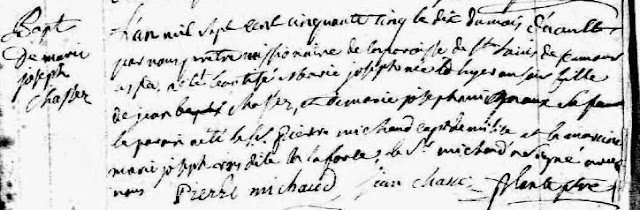 Bapt
De marie
joseph
chassez
Lan mil sept cent cinquante cinq le dix du mois
par nous prêtre missionnaire de la paroisse de St Louis de Kamour
a été baptisé marie joseph née hyer au soir fille
de jean bapte Chassez, et de marie joseph sa fame
le parain a été le Sr Pierre michaud capt de milice et la maraine
marie joseph dite la le Sr michaud a signé avec
nous Pierre michaud jean Chasse ptre